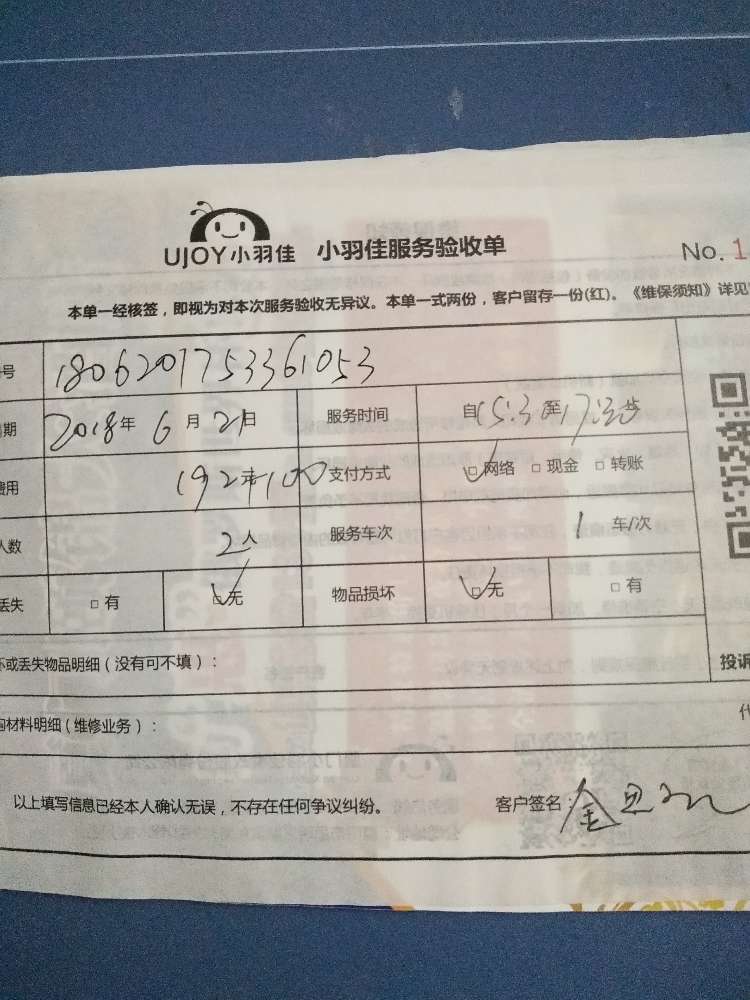 UJOY小羽佳 小羽佳服务验收单
No. 1
本单一经核签，即视为对本次服务验收无异议。本单一式两份，客户留存一份(红)。《维保须知》详见
号 1806201753361053
期 2018年 6月 21日 服务时间 自 至 止
费用 192+100 支付方式 □网络 □现金 □转账
人数 2人 服务车次 1 车/次
丢失 □有 □无 物品损坏 □无 □有
坏或丢失物品明细(没有可不填)：
投诉
材料明细(维修业务)：
以上填写信息已经本人确认无误，不存在任何争议纠纷。 客户签名：金